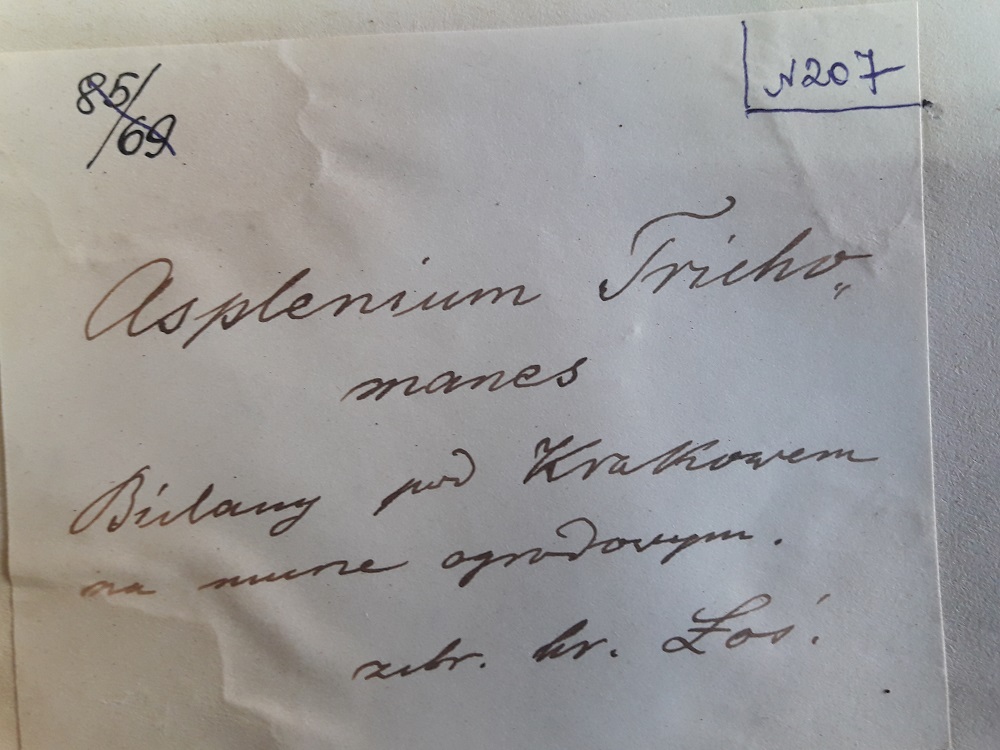 85/69
N207
Asplenium Tricho„
manes
Bielany pod Krakowem
na murze ogrodowym.
zebr. hr. Łoś.